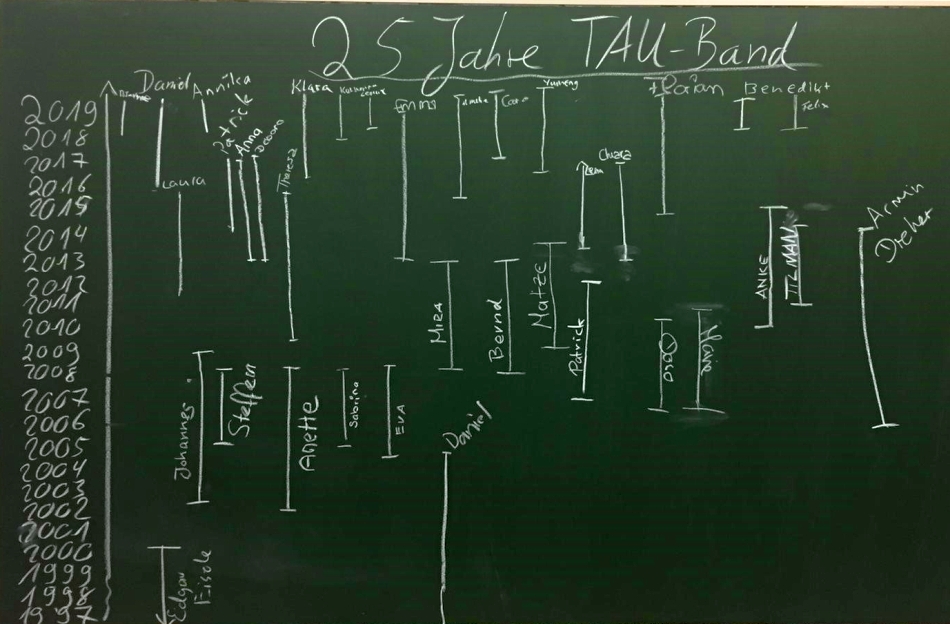 25 Jahre TAU-Band
Daniel
Annika
Klara
Emma
Caro
Yumeng
Florian
Benedikt
Felix
Patrick
Anna
Theresa
Laura
Lena
Chiara
Armin
Dreher
2019
2018
2017
2016
2015
2014
2013
2012
2011
2010
2009
2008
2007
2006
2005
2004
2003
2002
2001
2000
1999
1998
1997
MIRA
Bernd
Matze
Patrick
ANKE
TILMAN
Johannes
Steffen
Anette
Sabrina
EVA
Daniel
Edgar
Eisele